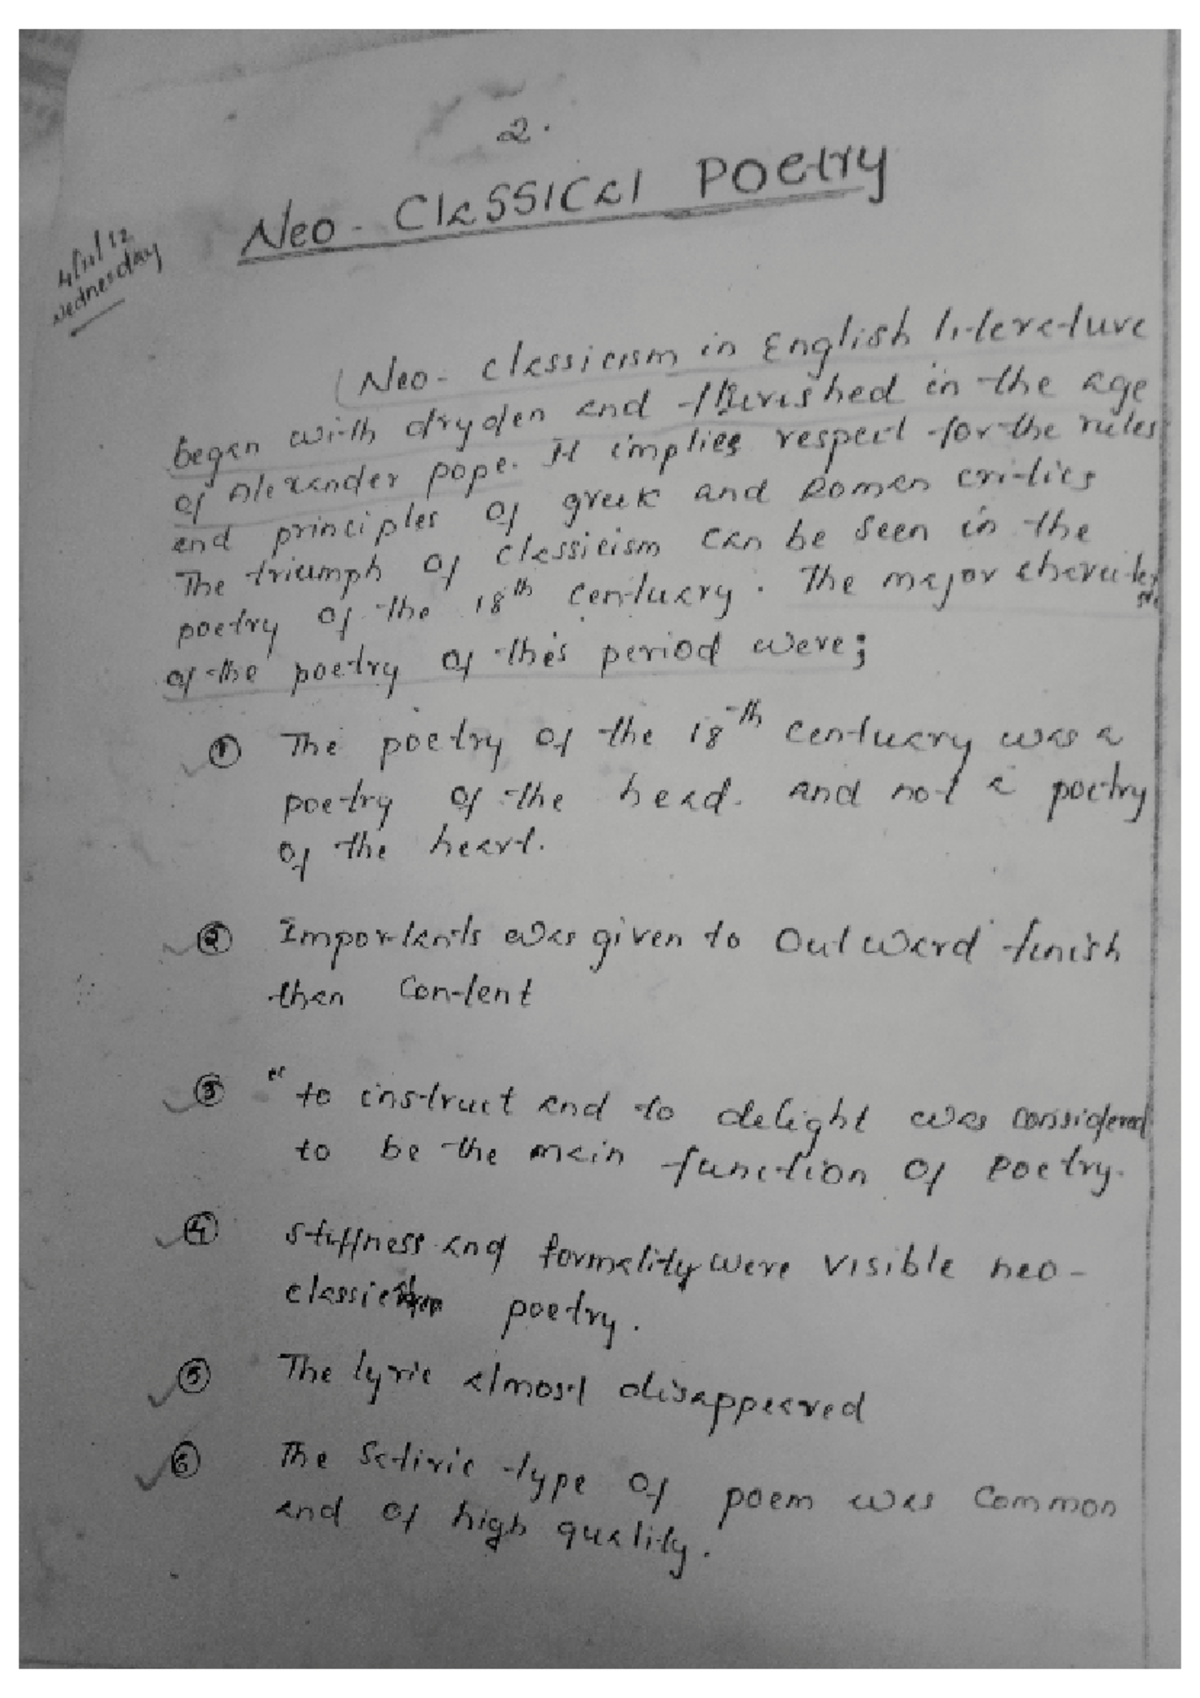 2.
Neo - Classical Poetry
Wednesday
Neo - classicism in English literature
began with dryden and flurished in the age
of Alexander pope. It implies respect for the rules
and principles of greek and Roman critics
The triumph of classicism can be seen in the
poetry of the 18th centuary. The major
of the poetry of this period were;
① The poetry of the 18th centuary was a
poetry of the head. and not a poetry
of the heart.
② Importants was given to Outward finish
than Content
③ "to instruct and to delight was considered
to be the main function of Poetry.
④ stiffness and formality were visible neo-
poetry.
⑤ The lyric almost disappeared
⑥ The Satiric type of poem was Common
and of high quality.